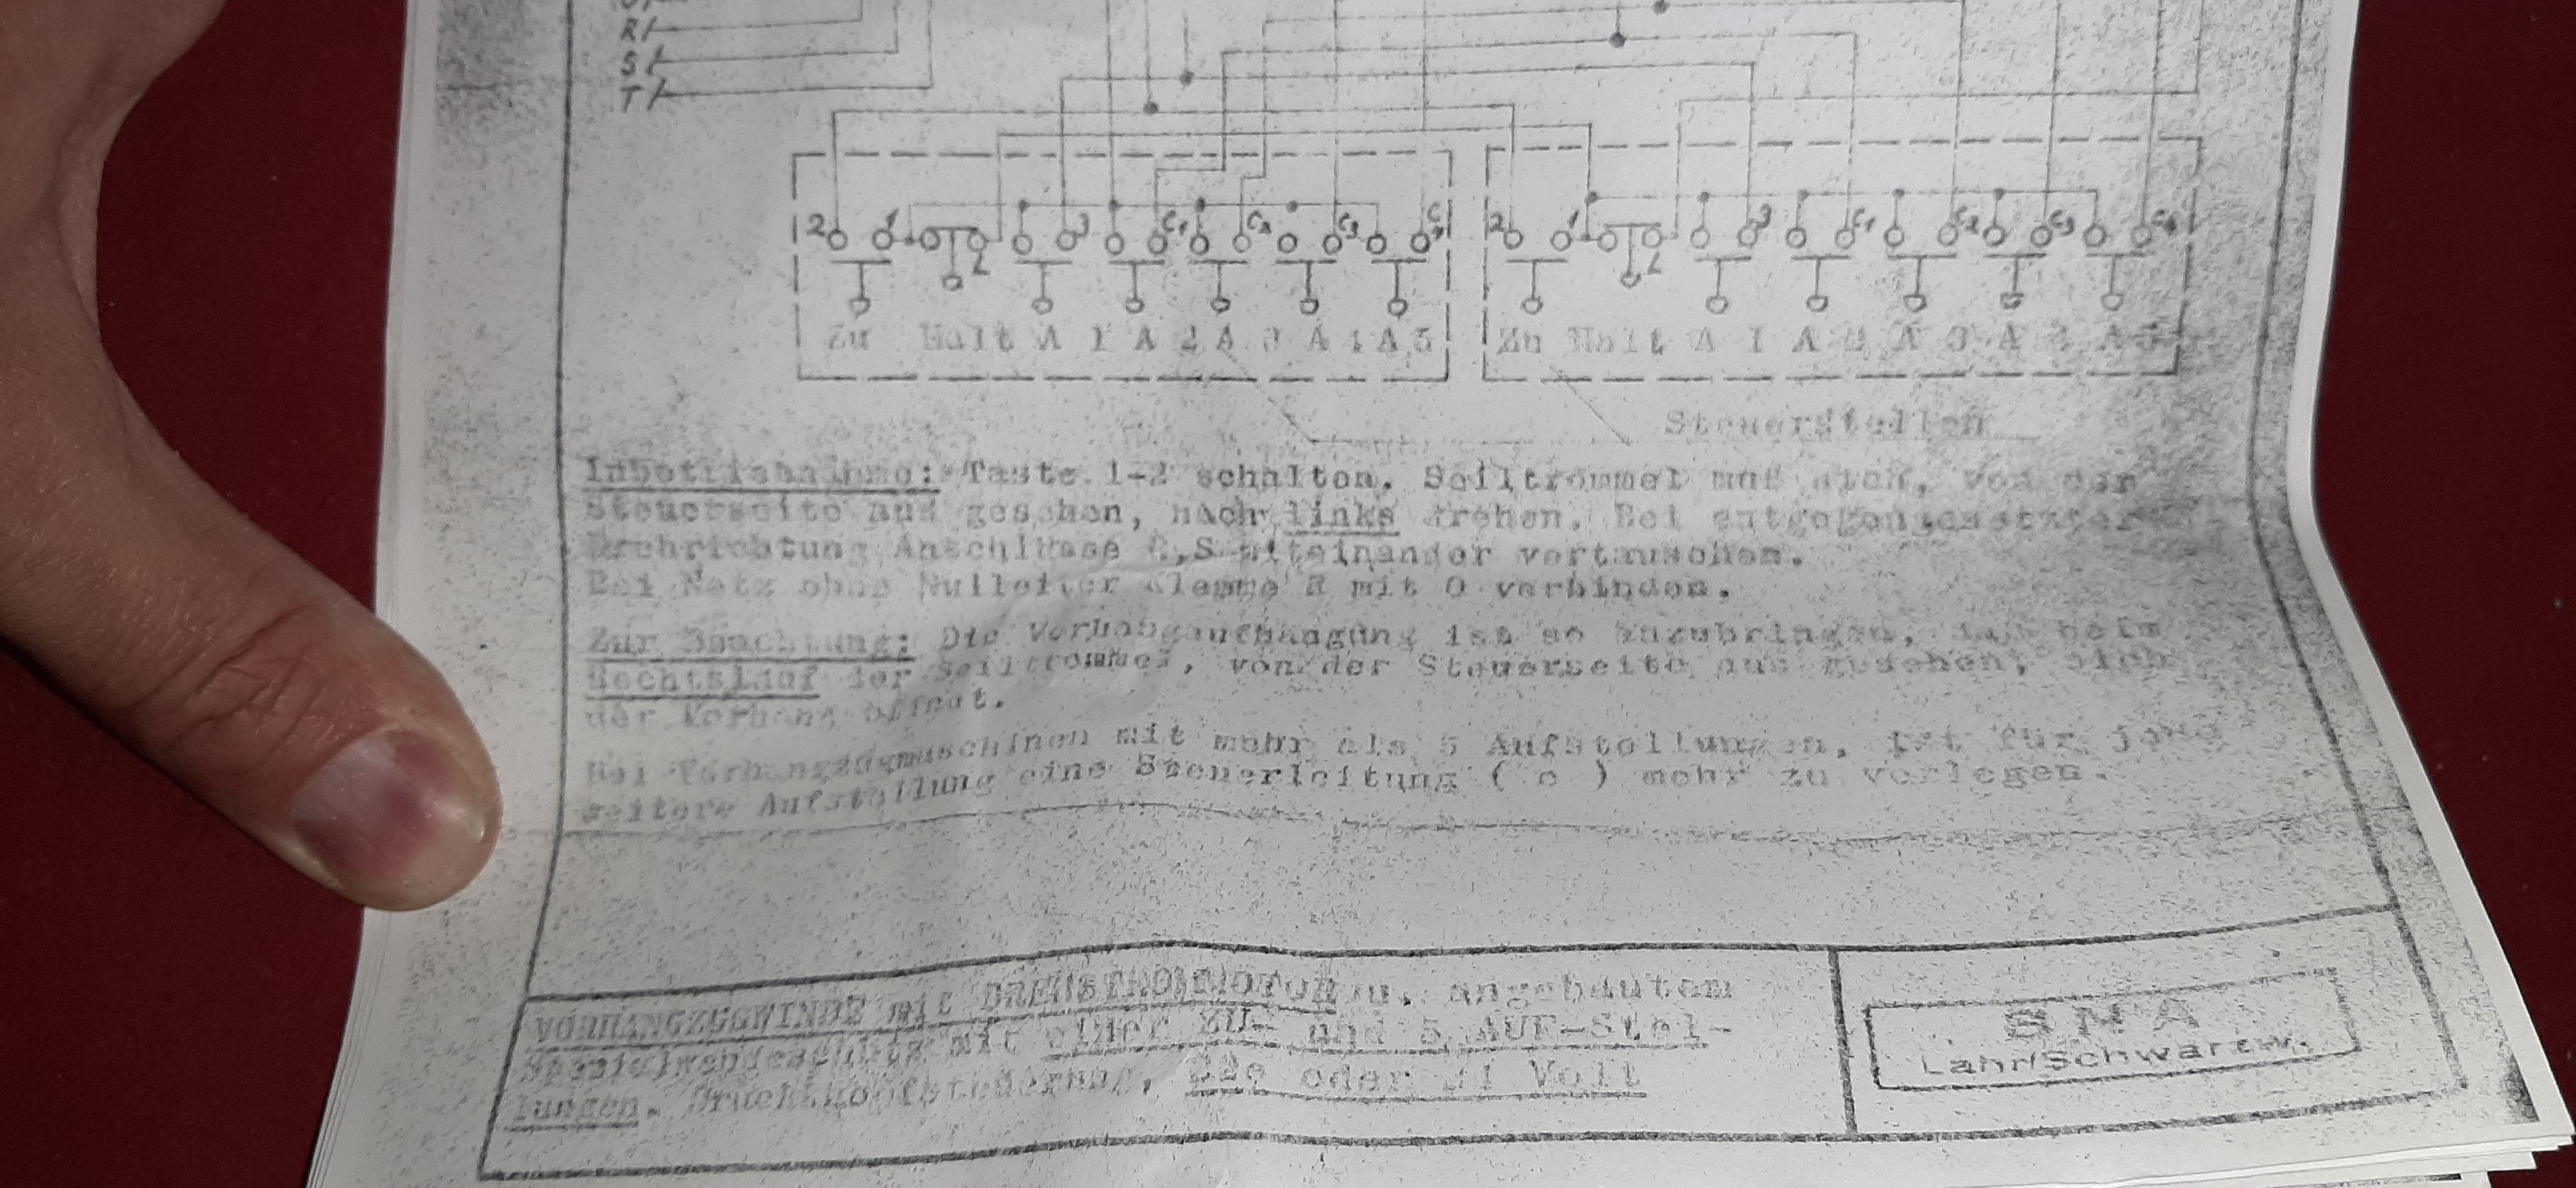 R
S
T
2 1 2 3 C1 C2 C3 C4
2 1 2 3 C1 C2 C3 C4
Zu Halt A 1 A 2 A 3 A 4 A 5
Zu Halt A 1 A 2 A 3 A A
Steuerstellen
Inbetriebnahme: Taste 1-2 schalten. Seiltrommel muß sich, von der
Steuerseite aus gesehen, nach links drehen. Bei entgegengesetzter
Drehrichtung Anschlüsse R,S miteinander vertauschen.
Bei Netz ohne Nulleiter Klemme R mit O verbinden.
Zur Beachtung: Die Vorhangaufhängung ist so anzubringen, beim
Rechtslauf der Seiltrommel, von der Steuerseite aus gesehen, sich
der Vorhang öffnet.
Bei Vorhangzugmaschinen mit mehr als 5 Aufstellungen, ist für jede
weitere Aufstellung eine Steuerleitung ( c ) mehr zu verlegen.
VORHANGZUGWINDE mit DREHSTROMMOTOR u. angebautem
Spezialwendeschütz mit einer ZU- und 5 AUF-Stel-
lungen. Druckknopfsteuerung, oder Volt
Lahr/Schwarzw.